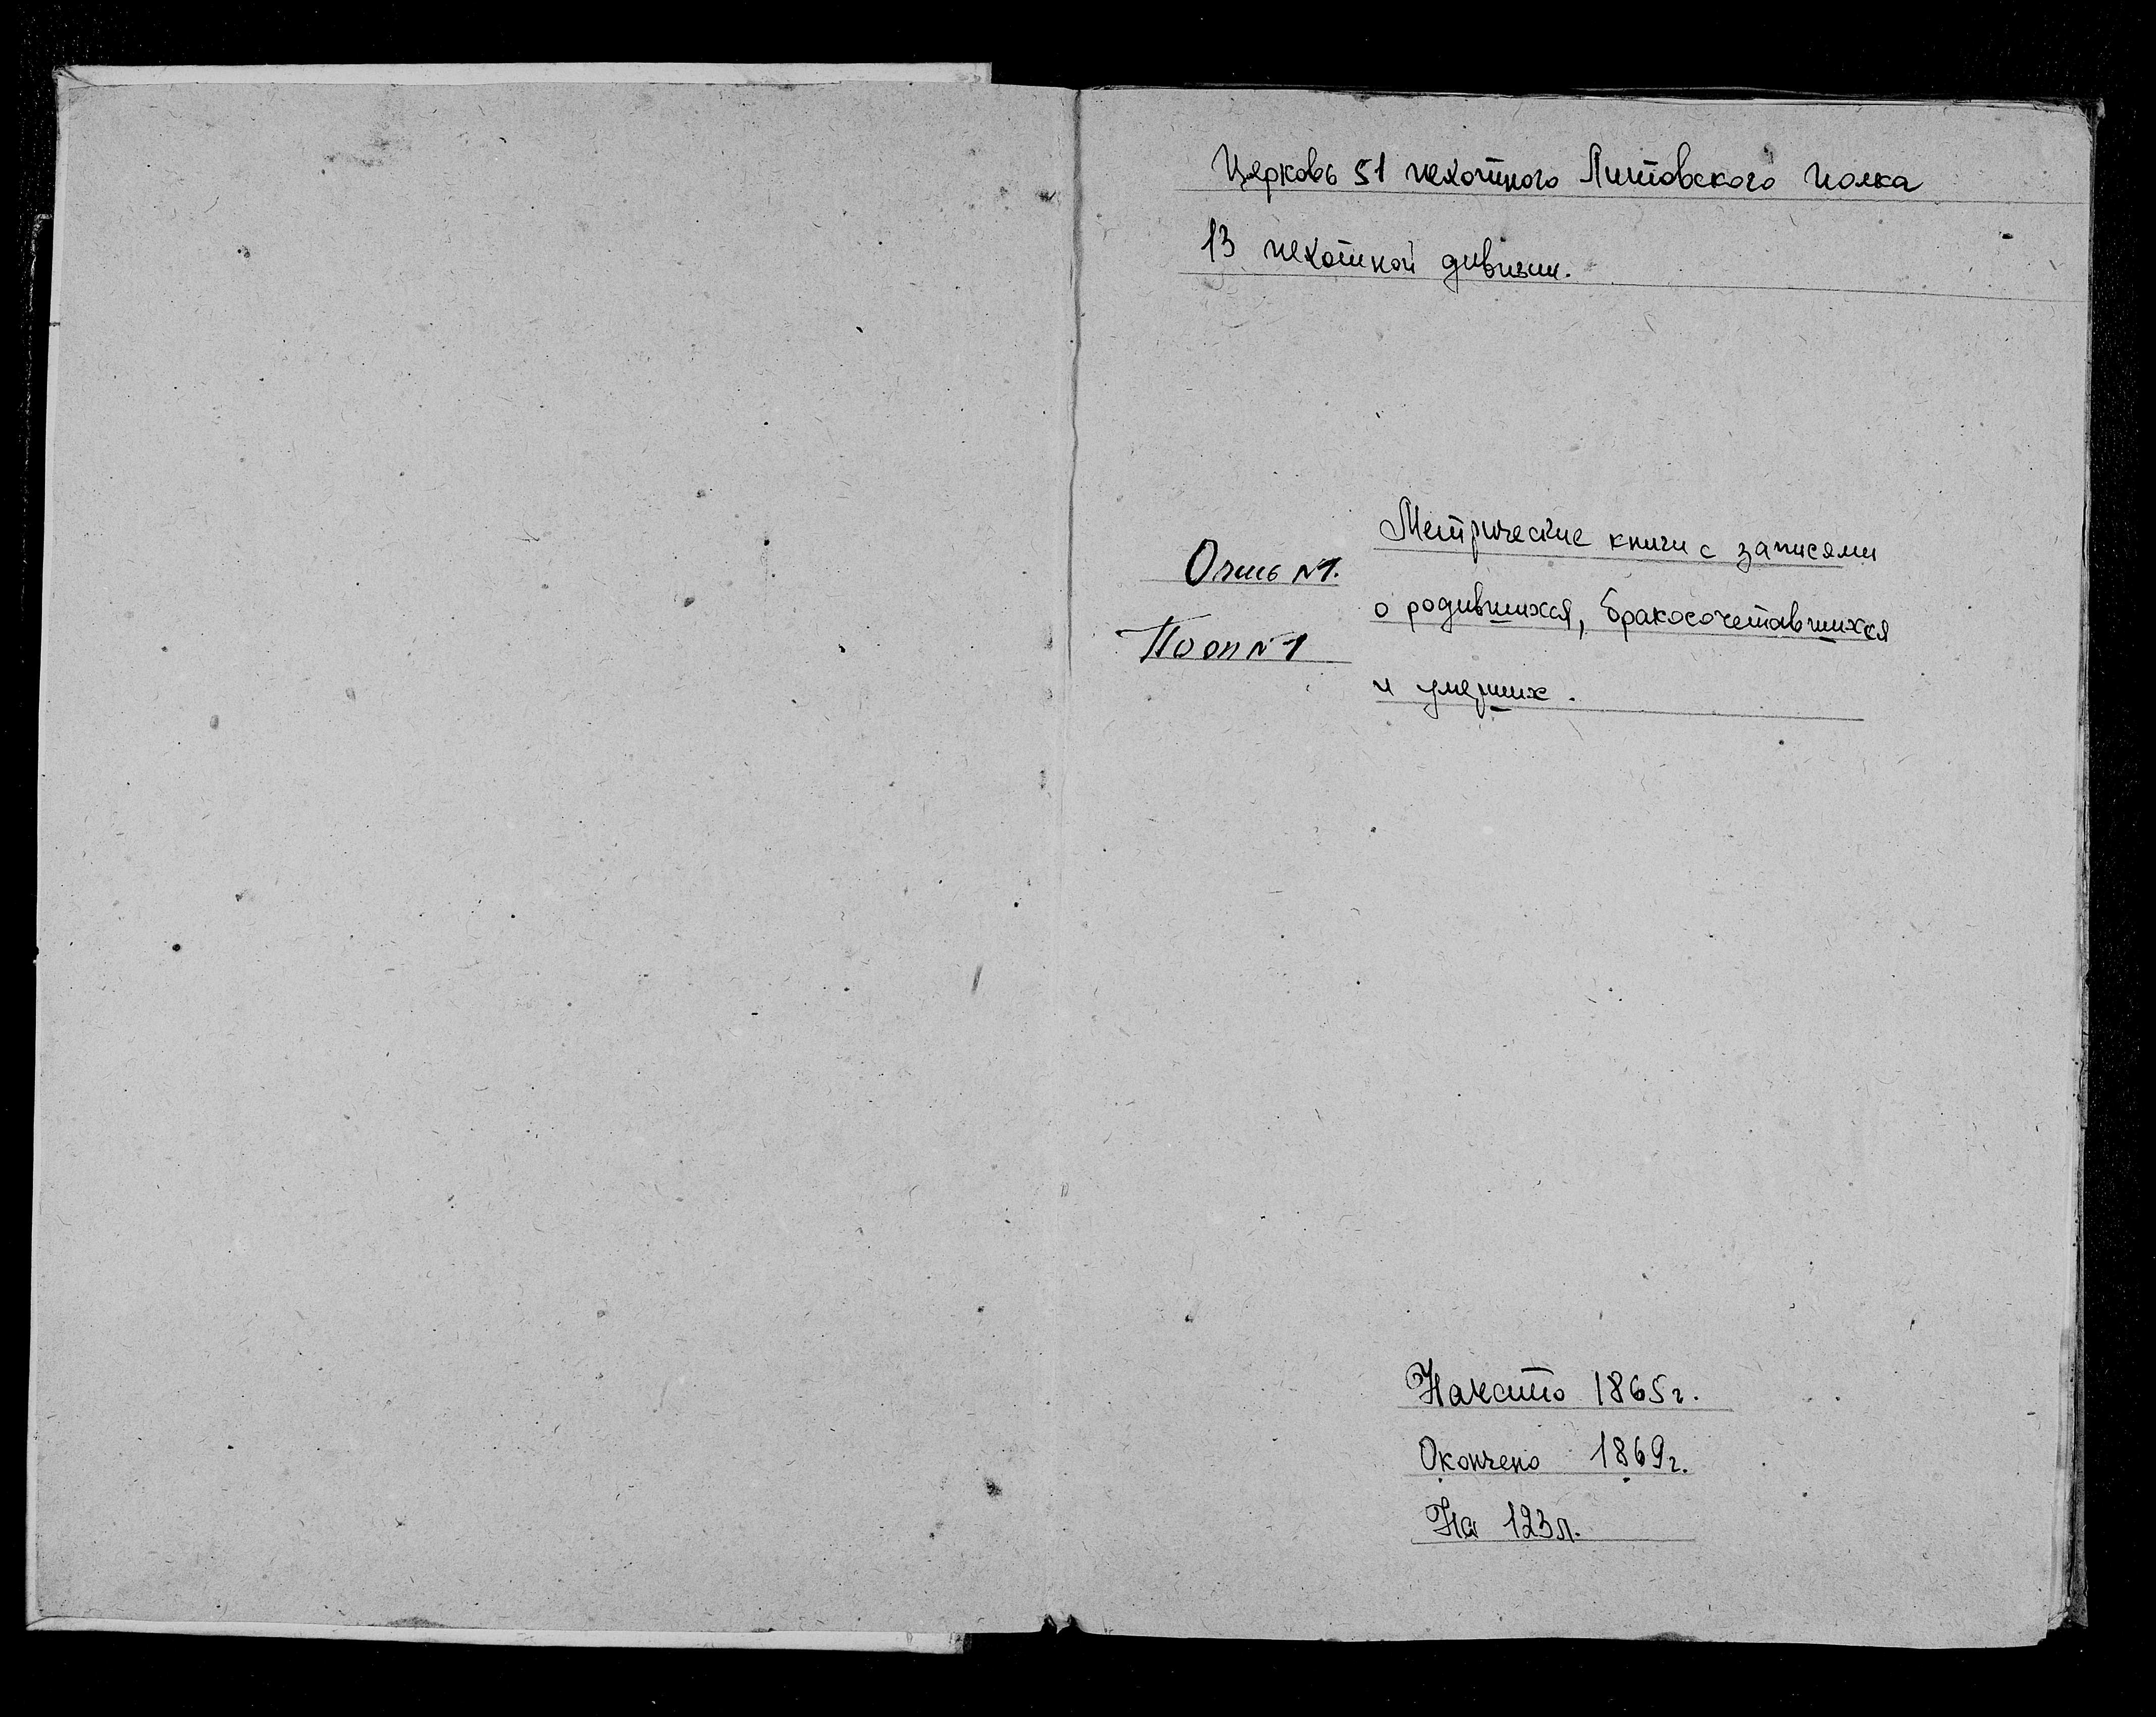 Церковь 51 пехотного Литовского полка
13 пехотной дивизии.
Метрические книги с записями
Опись №1.
о родившихся, бракосочетавшихся
По оп №1
и умерших.
Начато 1865г.
Окончено 1869г.
На 123л.